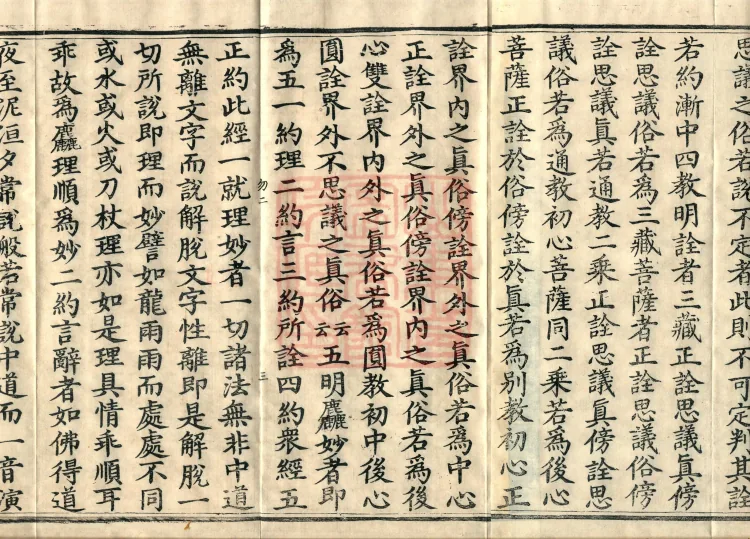 思議之俗若説不定者此則不可定判其詮
若約漸中四教明詮者三藏正詮思議眞傍
詮思議俗若爲三藏菩薩者正詮思議俗傍
詮思議眞若通教二乘正詮思議眞傍詮思
議俗若爲通教初心菩薩同二乘若爲後心
菩薩正詮於俗傍詮於眞若爲別教初心正
詮界內之眞俗傍詮界外之眞俗若爲中心
正詮界外之眞俗傍詮界內之眞俗若爲後
心雙詮界內外之眞俗若爲圓教初中後心
圓詮界外不思議之眞俗云云五明麤妙者即
爲五一約理二約言三約所詮四約衆經五
勿二
三
正約此經一就理妙者一切諸法無非中道
無離文字而說解脫文字性離即是解脫一
切所說即理而妙譬如龍雨雨而處處不同
或水或火或刀杖理亦如是理具情乖順耳
乖故爲麤理順爲妙二約言辭者如佛得道
夜至泥洹夕常說般若常說中道而一音演